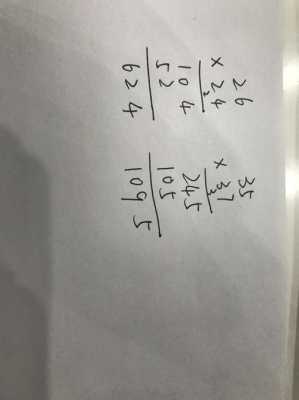 26
× 2₂4
104
52
624
35
× 3₃7
245
105
1095